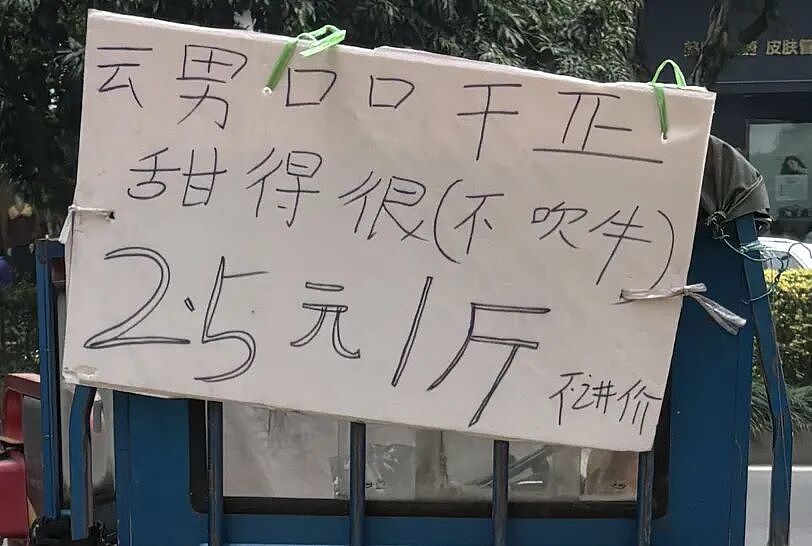 云男口口干正
甜得很(不吹牛)
2.5元1斤
不讲价
皮肤管